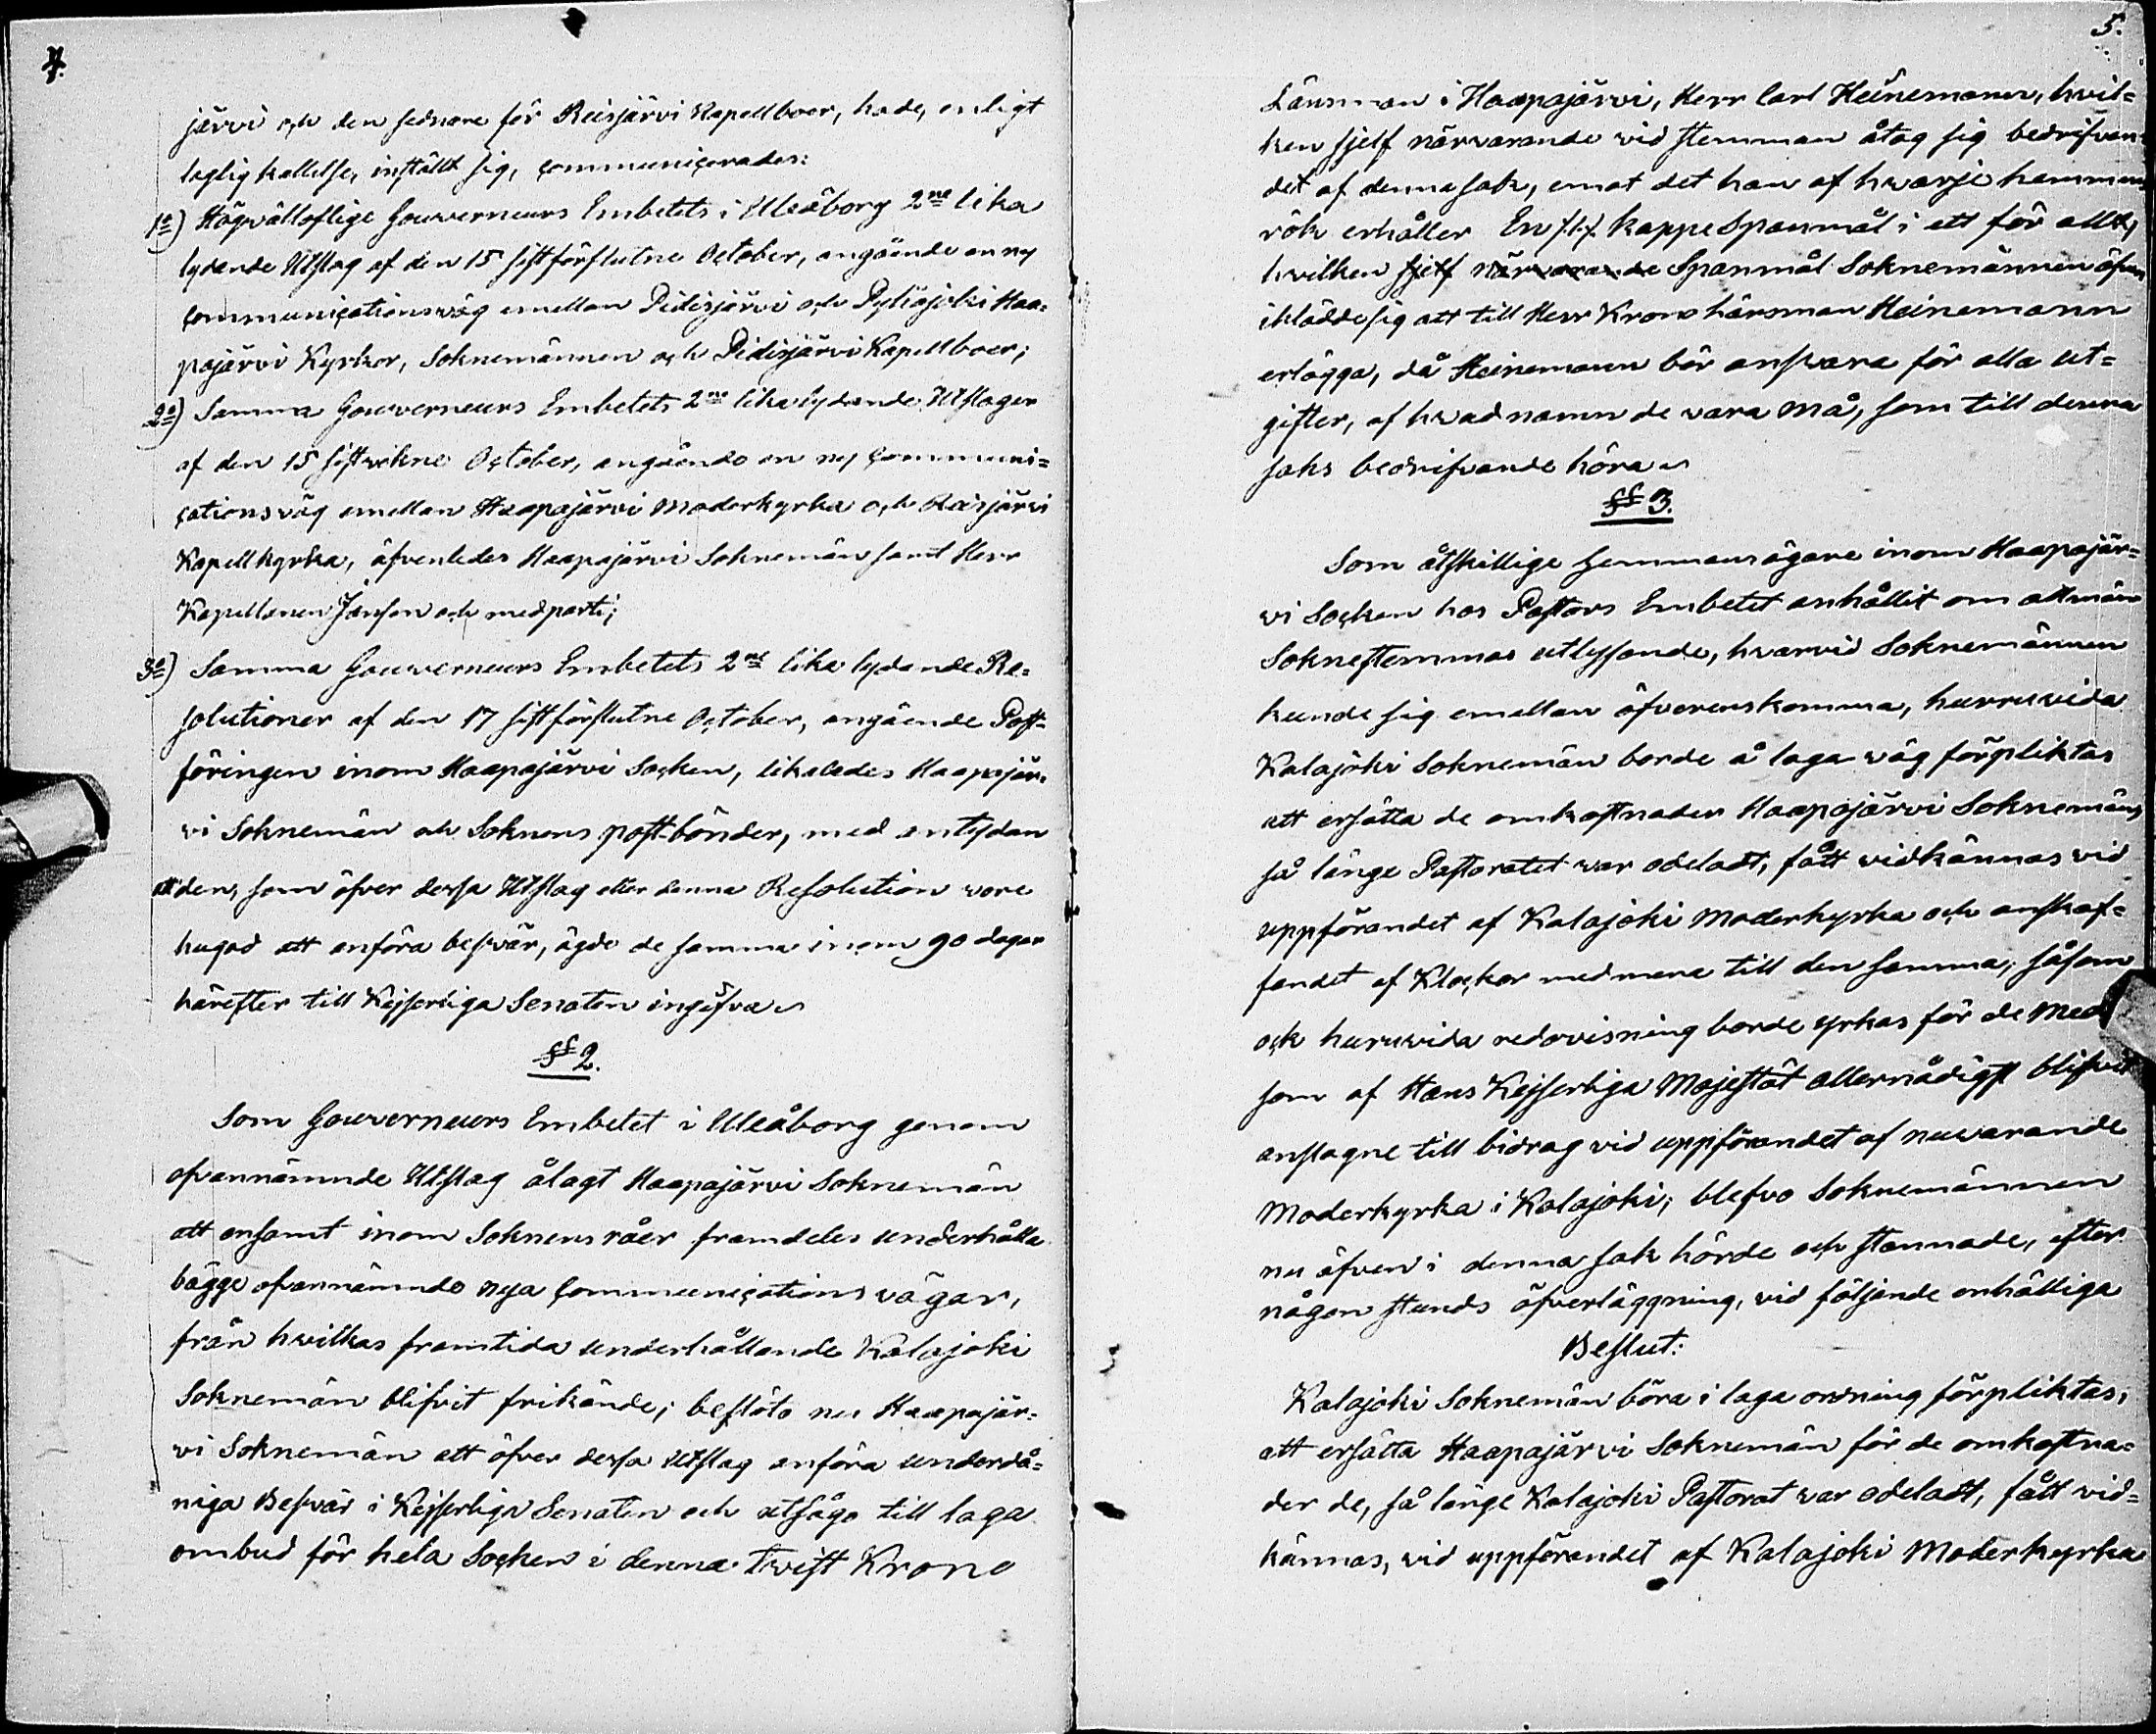 4.
järvi och den sednare för Reisjärvi Kapellboer, hade, enligt
laglig kallelse, inställt sig, communicerades:
1o) Högvälloflige Gouverneurs Embetets i Uleåborg 2ne lika
lydande Utslag af den 15 sistförflutne October, angående en ny
communicationsväg emellan Pidisjärvi och Pyhäjoki Haa-
pajärvi Kyrkor, Soknemännen och Pidisjärvi Kapellboer;
2o) Samma Gouverneurs Embetets 2ne lika lydande Utslager
af den 15 sistvikne October, angående en ny communi=
cationsväg emellan Haapajärvi Moderkyrka och Reisjärvi
Kapellkyrka, äfvenledes Haapajärvi Soknemän samt Herr
Kapellanen Janson och medparti;
3o) Samma Gouverneurs Embetets 2ne lika lydande Re-
solutioner af den 17 sistförflutne October, angående Post-
föringen inom Haapajärvi Socken, likaledes Haapajär-
vi Soknemän och Soknens post-bönder, med antydan
att den, som öfver dessa Utslag eller denna Resolution vore
hugad att anföra besvär, ägde de samma inom 90 dagar
härefter till Kejserliga Senaten ingifva
§§ 2.
Som Gouverneurs Embetet i Uleåborg genom
ofvannämnde Utslag ålagt Haapajärvi Soknemän
att ensamt inom Soknens råer framdeles underhålla
bägge ofvannämnde nya communications vägar,
från hvilkas framtida underhållande Kalajoki
Soknemän blifvit frikände; beslöto nu Haapajär-
vi Soknemän att öfver dessa Utslag anföra underdå=
niga Besvär i Kejserliga Senaten och utsågo till laga
ombud för hela Socken i denna twist Krono
5.
Länsman i Haapajärvi, Herr Carl Heinemann, hvil=
ken sjelf närvarande vid stemman åtog sig bedrifvan-
det af denna sak, emot det han af hvarje hemmans
rök erhåller En /:1:/ kappe Spanmål i ett för allt,
hvilken sjelf närvarande Spanmål Soknemännen äfven
iklädde sig att till Herr Krono länsman Heinemann
erlägga, då Heinemann bör ansvara för alla ut=
gifter, af hvad namn de vara må, som till denna
saks bedrifvande höra
§§ 3.
Som åtskillige hemmansägare inom Haapajär=
vi Socken hos Pastors Embetet anhållit om allmän
Soknestemmas utlysande, hvarvid Soknemännen
kunde sig emellan öfverenskomma, huruvida
Kalajoki Soknemän borde å laga väg förpliktas
att ersätta de omkostnader Haapajärvi Soknemän,
så länge Pastoratet var odeladt, fått vidkännas vid
uppförandet af Kalajoki Moderkyrka och anskaf=
fandet af Klockor med mera till den samma; såsom
ock huruvida redovisning borde yrkas för de Med
som af Hans Kejserliga Majestät allernådigst blifvit
anslagne till bidrag vid uppförandet af nuvarande
Moderkyrka i Kalajoki; blefvo Soknemännen
nu äfven i denna sak hörde och stannade, efter
någon stunds öfverläggning, vid följande enhälliga
Beslut:
Kalajoki Soknemän böra i laga ordning förpliktas,
att ersätta Haapajärvi Soknemän för de omkostna=
der de, så länge Kalajoki Pastorat var odeladt, fått vid=
kännas, vid uppförandet af Kalajoki Moderkyrka